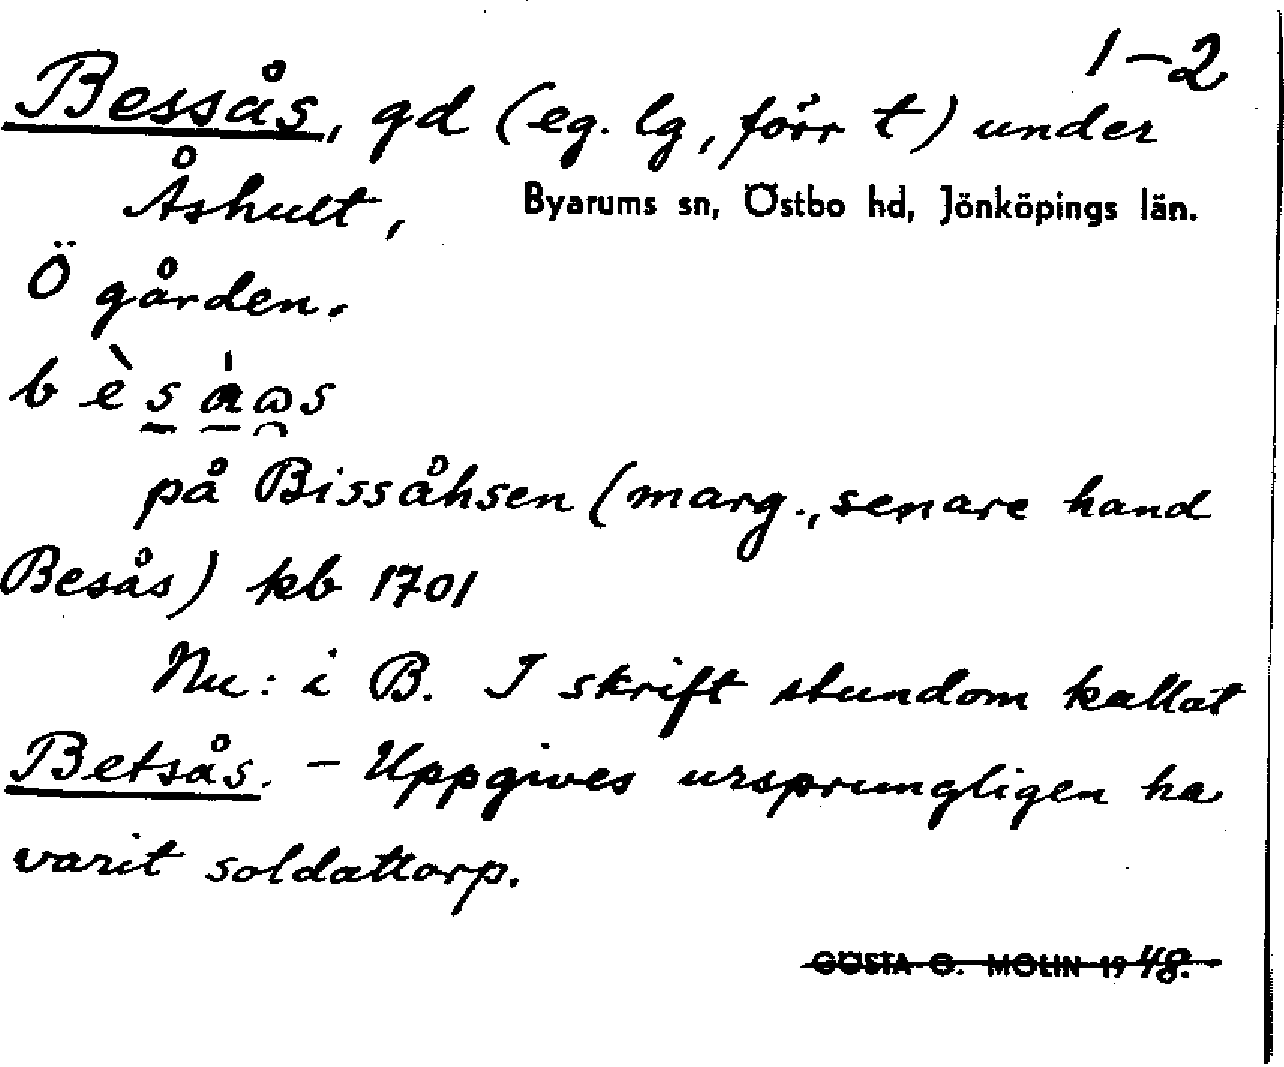 1-2
Bessås, gd (eg. lg, förr t) under
Åshult, Byarums sn, Östbo hd, Jönköpings län.
Ö gården.
bèsås
på Bissåhsen (marg., senare hand
Besås) kb 1701
Nu: i B. I skrift stundom kallat
Betsås. - Uppgives ursprungligen ha
varit soldattorp.
GÖSTA O. MOLIN 1948.